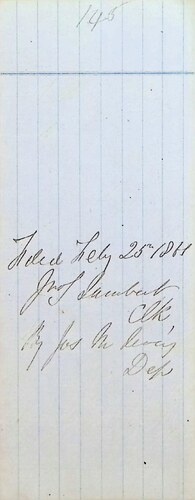 145
Filed Feby 25th 1861
Jno S Lambert
Clk
By Jas M
Dep